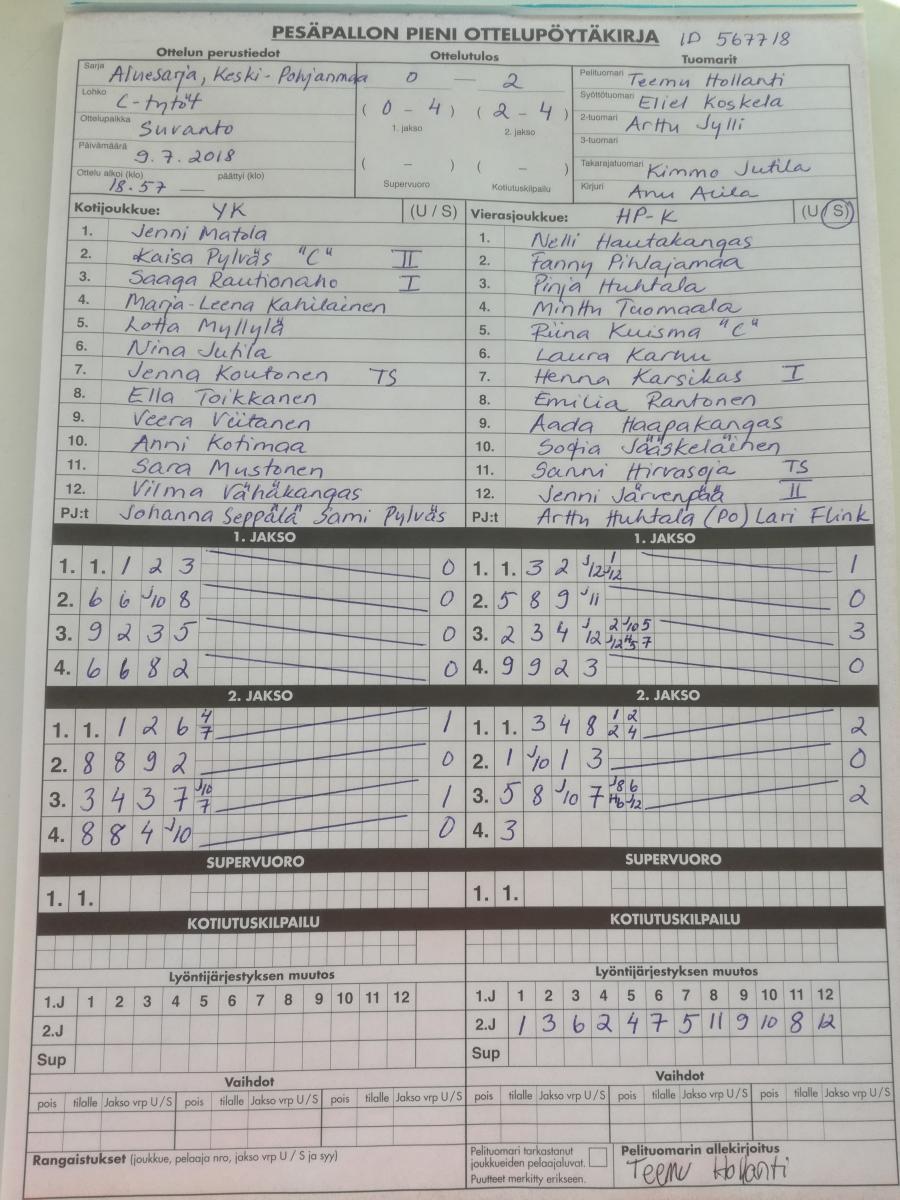 PESÄPALLON PIENI OTTELUPÖYTÄKIRJA ID 567718
Ottelun perustiedot
Sarja Aluesarja, Keski-Pohjanmaa
Lohko C-tytöt
Ottelupaikka Suvanto
Päivämäärä 9.7.2018
Ottelu alkoi (klo) 18.57 — päättyi (klo)
Ottelutulos
0 — 2
( 0 - 4 ) ( 2 - 4 )
1. jakso 2. jakso
( - ) ( - )
Supervuoro Kotiutuskilpailu
Tuomarit
Pelituomari Teemu Hollanti
Syöttötuomari Eliel Koskela
2-tuomari Arttu Jylli
3-tuomari
Takarajatuomari Kimmo Jutila
Kirjuri Anu Arila
Kotijoukkue: YK (U / S)
1. Jenni Matola
2. Kaisa Pylväs "C" II
3. Saaga Rautionaho I
4. Marja-Leena Kahilainen
5. Lotta Myllylä
6. Nina Jutila
7. Jenna Koutonen TS
8. Ella Toikkanen
9. Veera Viitanen
10. Anni Kotimaa
11. Sara Mustonen
12. Vilma Vähäkangas
PJ:t Johanna Seppälä Sami Pylväs
Vierasjoukkue: HP-K (U / S)
1. Nelli Hautakangas
2. Fanny Pihlajamaa
3. Pinja Huhtala
4. Minttu Tuomaala
5. Riina Kuisma "C"
6. Laura Karhu
7. Henna Karsikas I
8. Emilia Rantonen
9. Aada Haapakangas
10. Sofia Jääskeläinen
11. Sanni Hirvasoja TS
12. Jenni Järvenpää II
PJ:t Arttu Huhtala (PO) Lari Flink
1. JAKSO
1. 1. 1 2 3 0
2. 6 6 J/10 8 0
3. 9 2 3 5 0
4. 6 6 8 2 0
1. JAKSO
1. 1. 3 2 J/12 1 J/12 1
2. 5 8 9 J/11 0
3. 2 3 4 J/12 2 J/10 5 J/12 H/5 7 3
4. 9 9 2 3 0
2. JAKSO
1. 1. 1 2 6 4 7 1
2. 8 8 9 2 0
3. 3 4 3 7 J/10 7 1
4. 8 8 4 J/10 0
2. JAKSO
1. 1. 3 4 8 1 2 2 4 2
2. 1 J/10 1 3 0
3. 5 8 J/10 7 J/8 6 H/6 J/12 2
4. 3
SUPERVUORO
1. 1.
SUPERVUORO
1. 1.
KOTIUTUSKILPAILU
KOTIUTUSKILPAILU
Lyöntijärjestyksen muutos
1.J 1 2 3 4 5 6 7 8 9 10 11 12
2.J
Sup
Lyöntijärjestyksen muutos
1.J 1 2 3 4 5 6 7 8 9 10 11 12
2.J 1 3 6 2 4 7 5 11 9 10 8 12
Sup
Vaihdot
pois tilalle Jakso vrp U / S pois tilalle Jakso vrp U / S pois tilalle Jakso vrp U / S
Vaihdot
pois tilalle Jakso vrp U / S pois tilalle Jakso vrp U / S pois tilalle Jakso vrp U / S
Rangaistukset (joukkue, pelaaja nro, jakso vrp U / S ja syy)
Pelituomari tarkastanut
joukkueiden pelaajaluvat.
Puutteet merkitty erikseen.
Pelituomarin allekirjoitus
Teemu Hollanti